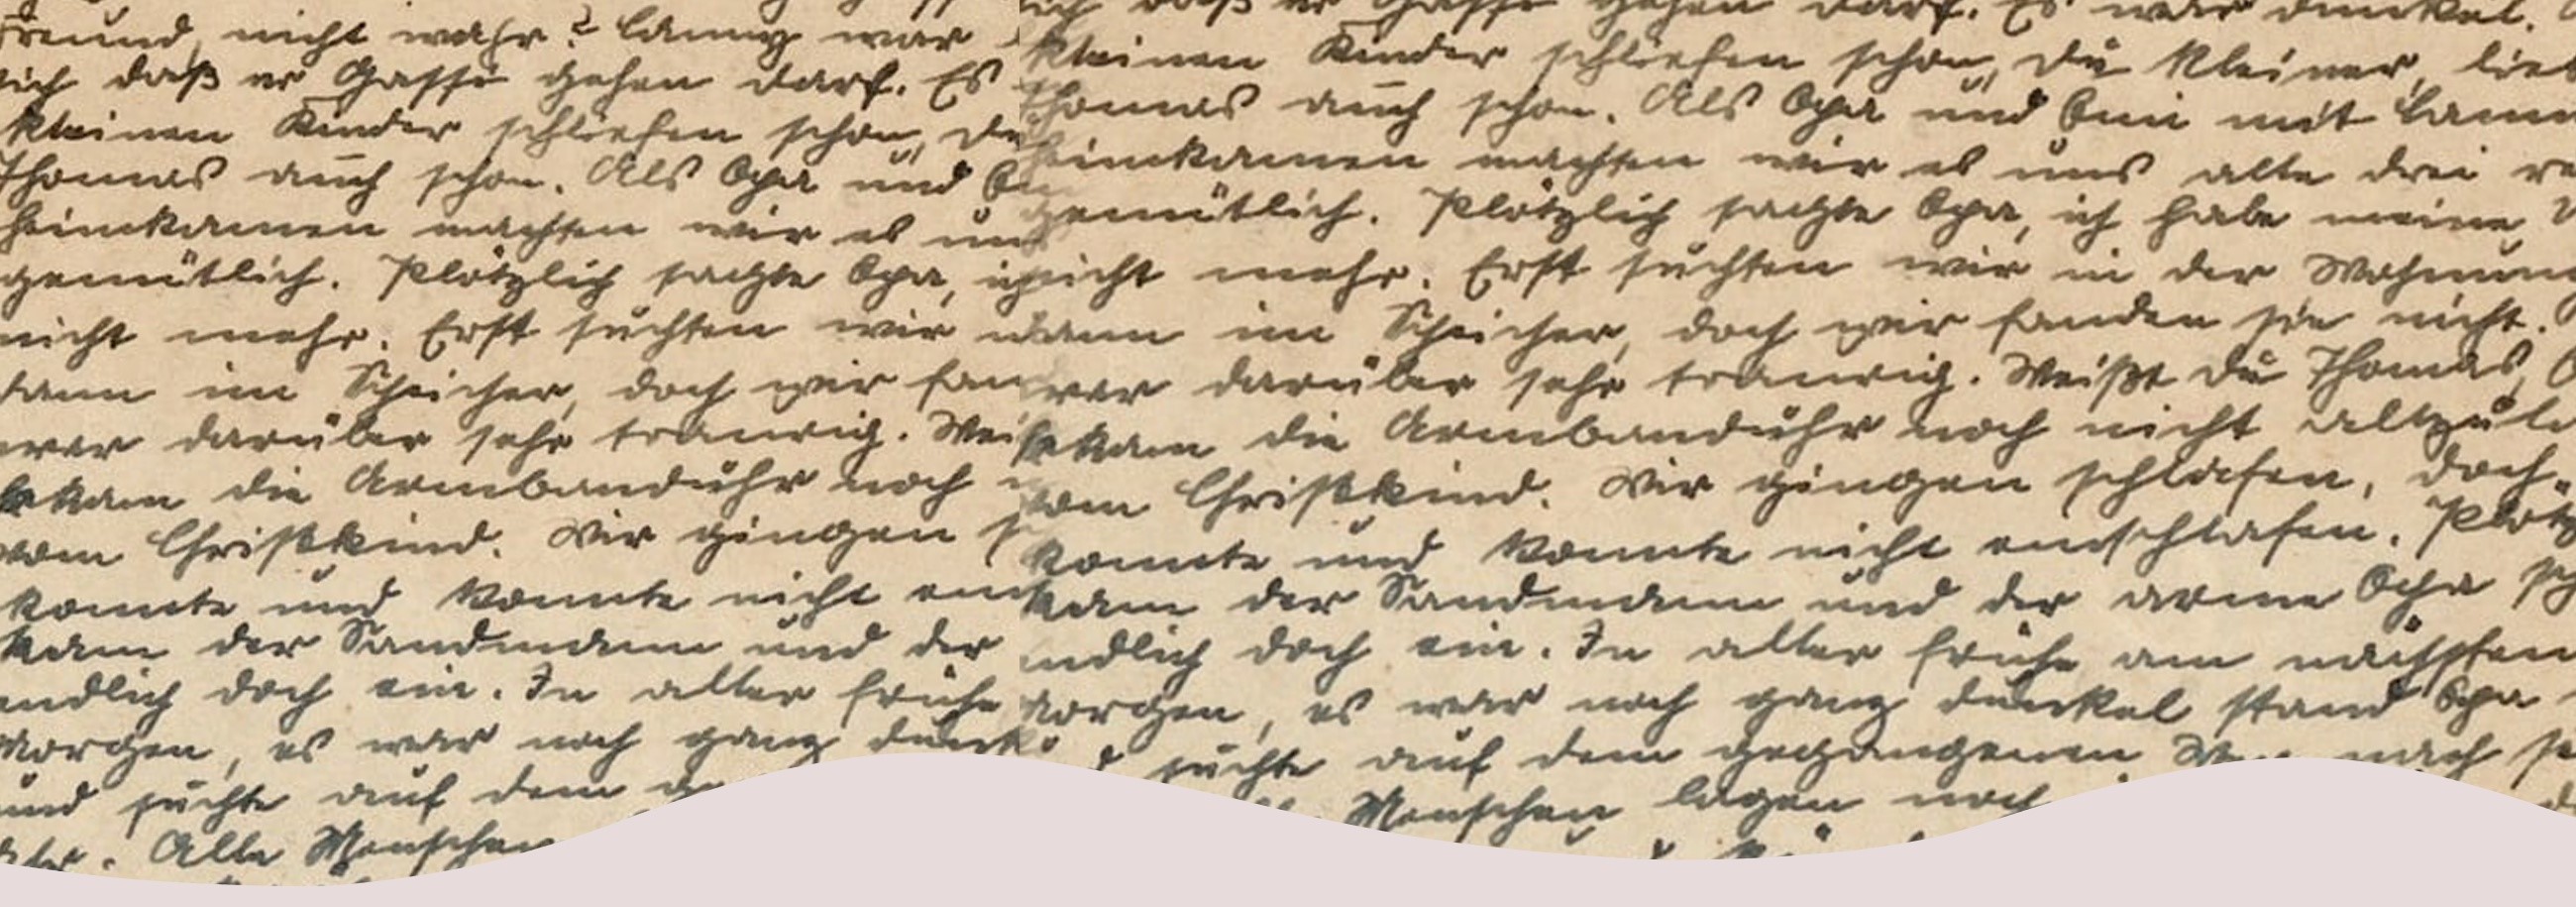 Freund, nicht wahr? Lanny war
sich daß er Gassi gehen darf. Es
kleinen Kinder schliefen schon, Du
Thomas auch schon. Als Opa und
heimkamen machten wir es uns
gemütlich. Plötzlich sagte Opa,
nicht mehr. Erst suchten wir
dann im Speicher, doch wir fan
war darüber sehr traurig. Wei
bekam die Armbanduhr noch
vom Christkind. Wir gingen
konnte und konnte nicht ein
kam der Sandmann und der
endlich doch ein. In aller Frühe
Morgen, es war noch ganz dunk
und suchte auf dem
Alle Menschen
sich daß er Gassi gehen darf. Es war dunkel.
kleinen Kinder schliefen schon, Du kleiner, lieb
Thomas auch schon. Als Opa und Omi mit Lann
heimkamen machten wir es uns alle drei re
gemütlich. Plötzlich sagte Opa, ich habe meine
nicht mehr. Erst suchten wir in der Wohnun
dann im Speicher, doch wir fanden sie nicht.
war darüber sehr traurig. Weißt Du Thomas,
bekam die Armbanduhr noch nicht allzu
vom Christkind. Wir gingen schlafen, doch
konnte und konnte nicht einschlafen. Plötz
kam der Sandmann und der arme Opa
endlich doch ein. In aller Frühe am nächsten
Morgen, es war noch ganz dunkel stand Opa
suchte auf dem gegangenen Weg nach
Menschen lagen noch